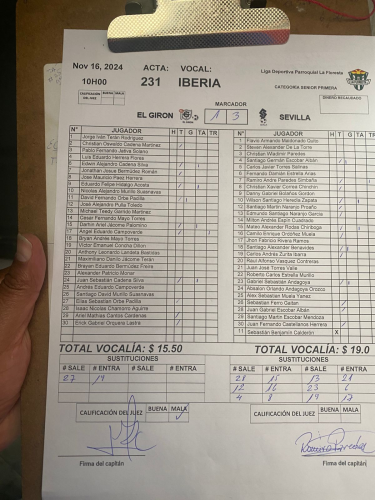 Nov 16, 2024 ACTA: VOCAL:
10H00 231 IBERIA
Liga Deportiva Parroquial La Floresta
CATEGORÍA SENIOR PRIMERA
CALIFICACIÓN DEL JUEZ BUENA MALA
DINERO RECAUDADO
MARCADOR
EL GIRON 1 3 SEVILLA
N° JUGADOR H T G TA TR
1 Jorge Iván Terán Rodríguez
2 Christian Oswaldo Cadena Martínez
3 Pablo Fernando Játiva Solano
4 Luis Eduardo Herrera Flores
5 Edwin Alejandro Cadena Silva
6 Jonathan Josue Bermúdes Román
7 Jose Mauricio Paez Herrera
9 Eduardo Felipe Hidalgo Acosta
10 Nicolás Alejandro Murillo Suasnavas
11 David Fernando Orbe Padilla
12 Jose Alejandro Puña Toledo
13 Michael Teedy Garrido Martínez
14 Cesar Fernando Mayo Torres
15 Darwin Ariel Jácome Palomino
17 Angel Eduardo Campoverde
18 Bryan Andres Mayo Torres
19 Victor Emanuel Concha Dillon
20 Anthony Leonardo Landeta Bastidas
21 Maximiliano Danilo Jácome Terán
22 Brayan Eduardo Bermúdez Freire
23 Alexander Patricio Moran
24 Juan Sebastián Cadena Silva
25 Andrés Eduardo Campoverde
26 Santiago David Murillo Suasnavas
27 Elias Sebastian Orbe Padilla
28 Isaac Nicolas Chamorro Aguirre
29 Ariel Mathias Carlos Cardenas
30 Erick Gabriel Orquera Lastra
TOTAL VOCALÍA: $ 15.50
SUSTITUCIONES
# SALE # ENTRA # SALE # ENTRA
27 19
CALIFICACIÓN DEL JUEZ BUENA MALA
Firma del capitán
N° JUGADOR H T G TA TR
1 Flavio Armando Maldonado Guito
2 Steven Alexander De La Torre
3 Christian Wladimir Paredes
4 Santiago Germán Escobar Albán
5 Carlos Javier Torres Salinas
6 Fernando Damián Estrella Arias
7 Ramiro Andre Paredes Simbaña
8 Christian Xavier Correa Chinchin
9 Danny Gabriel Bolaños Gordon
10 Wilson Santiago Heredia Zapata
12 Santiago Martín Naranjo Proaño
13 Edmundo Santiago Naranjo Garcia
14 Milton Andrés Espín Cuadrado
15 Mateo Alexander Rodas Chiriboga
16 Camilo Enrique Ordóñez Muela
17 Jhon Fabricio Rivera Ramos
18 Santiago Alexander Benavides
19 Carlos Andrés Zurita Ibarra
20 Raúl Alfonso Vásquez Contreras
21 Juan José Torres Valle
22 Roberto Carlos Estrella Murillo
23 Gabriel Sebastian Andagoya
24 Absalon Orlando Andagoya Orozco
25 Alex Sebastian Muela Yanez
26 Sebastian Ferro Gaitan
28 Juan Gabriel Escobar Albán
29 Santiago Martin Escobar Mendoza
30 Juan Fernando Castellanos Herrera
11 Sebastian Benjamín Calderón X
TOTAL VOCALÍA: $ 19.0
SUSTITUCIONES
# SALE # ENTRA # SALE # ENTRA
28 15 13 21
12 16 23 6
4 8 19 17
CALIFICACIÓN DEL JUEZ BUENA MALA
Firma del capitán